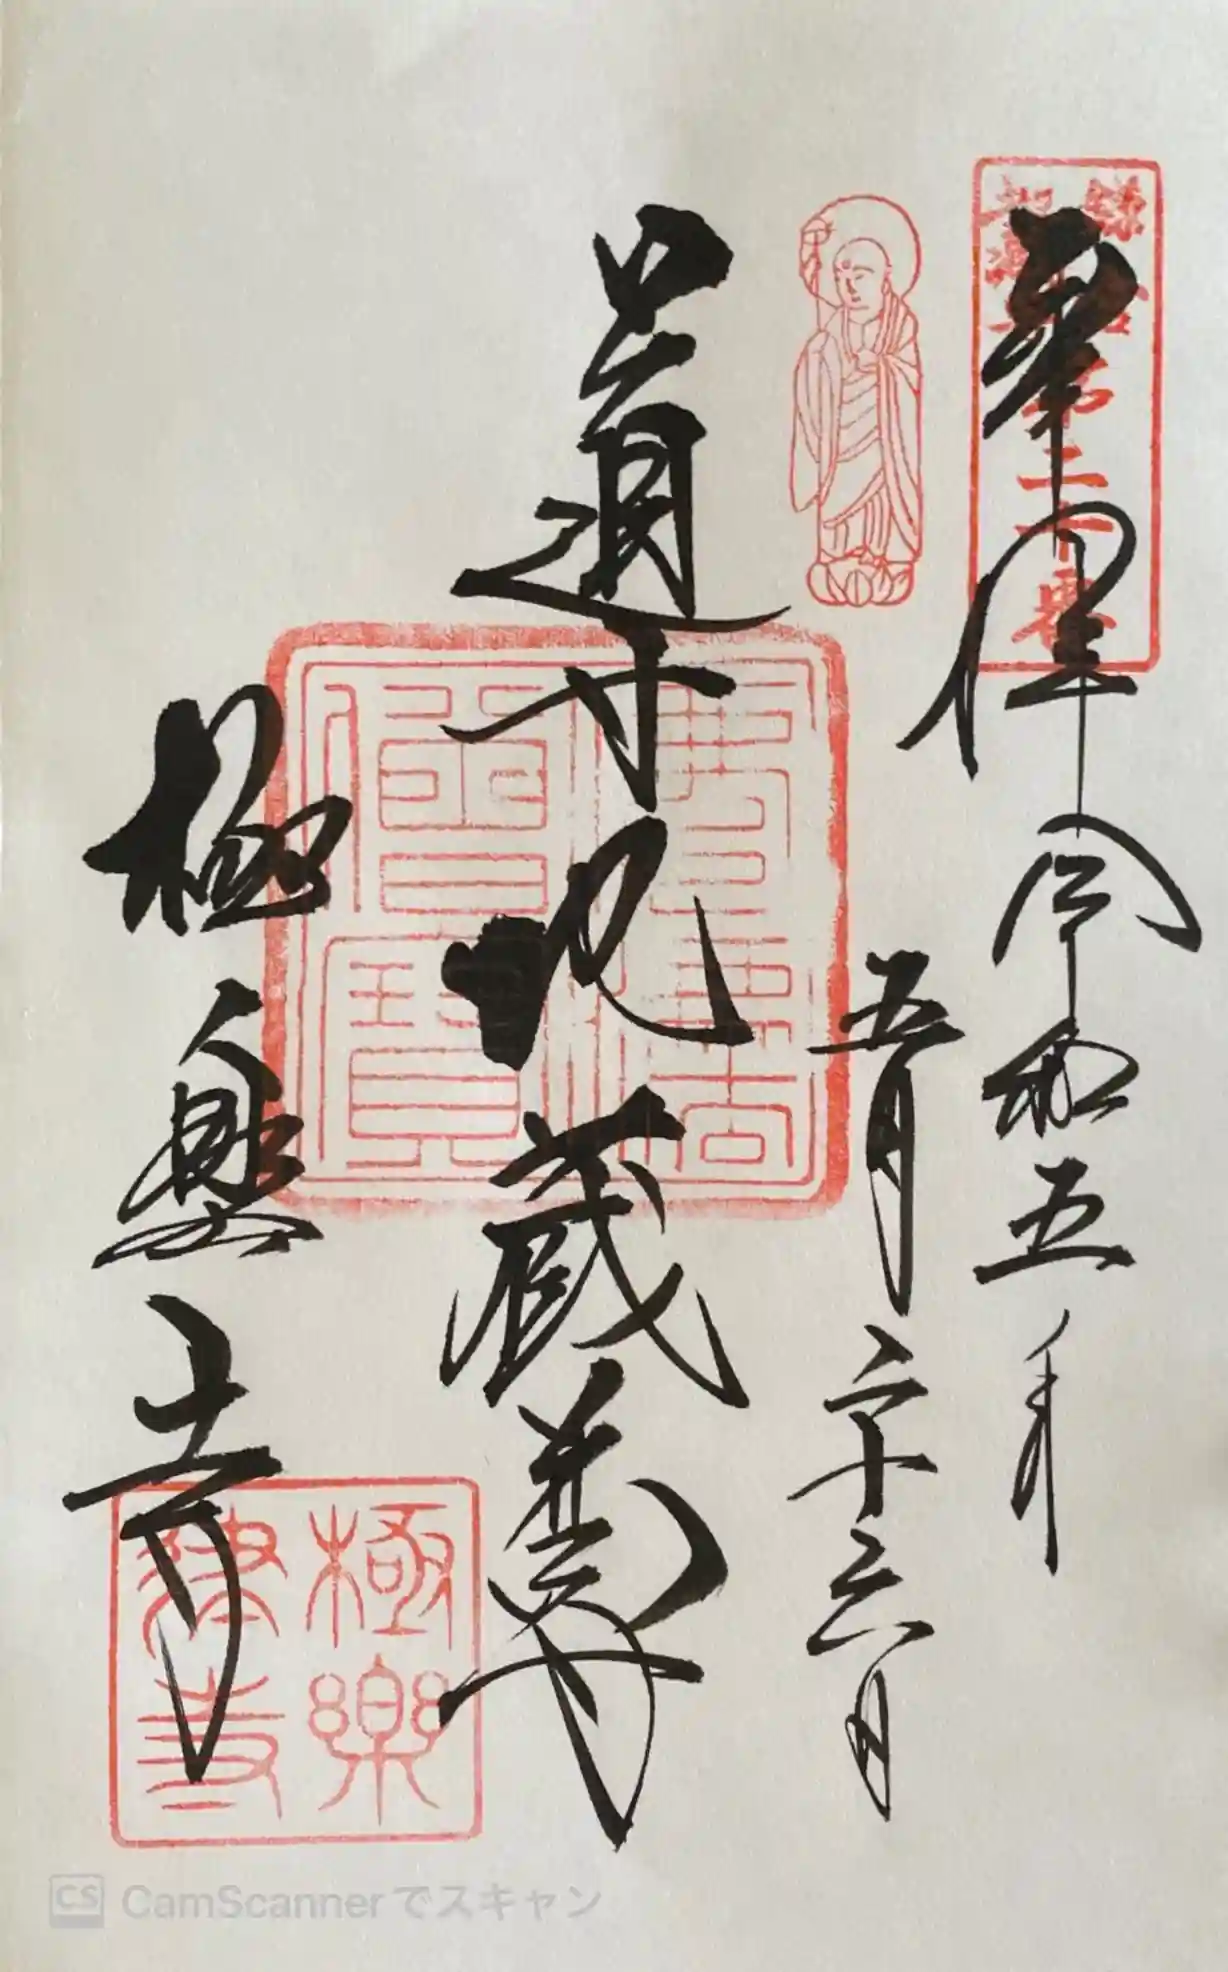 奉拝
令和五年
五月二十六日
第二十番
導地蔵尊
極楽寺
極樂
律寺
CS CamScannerでスキャン